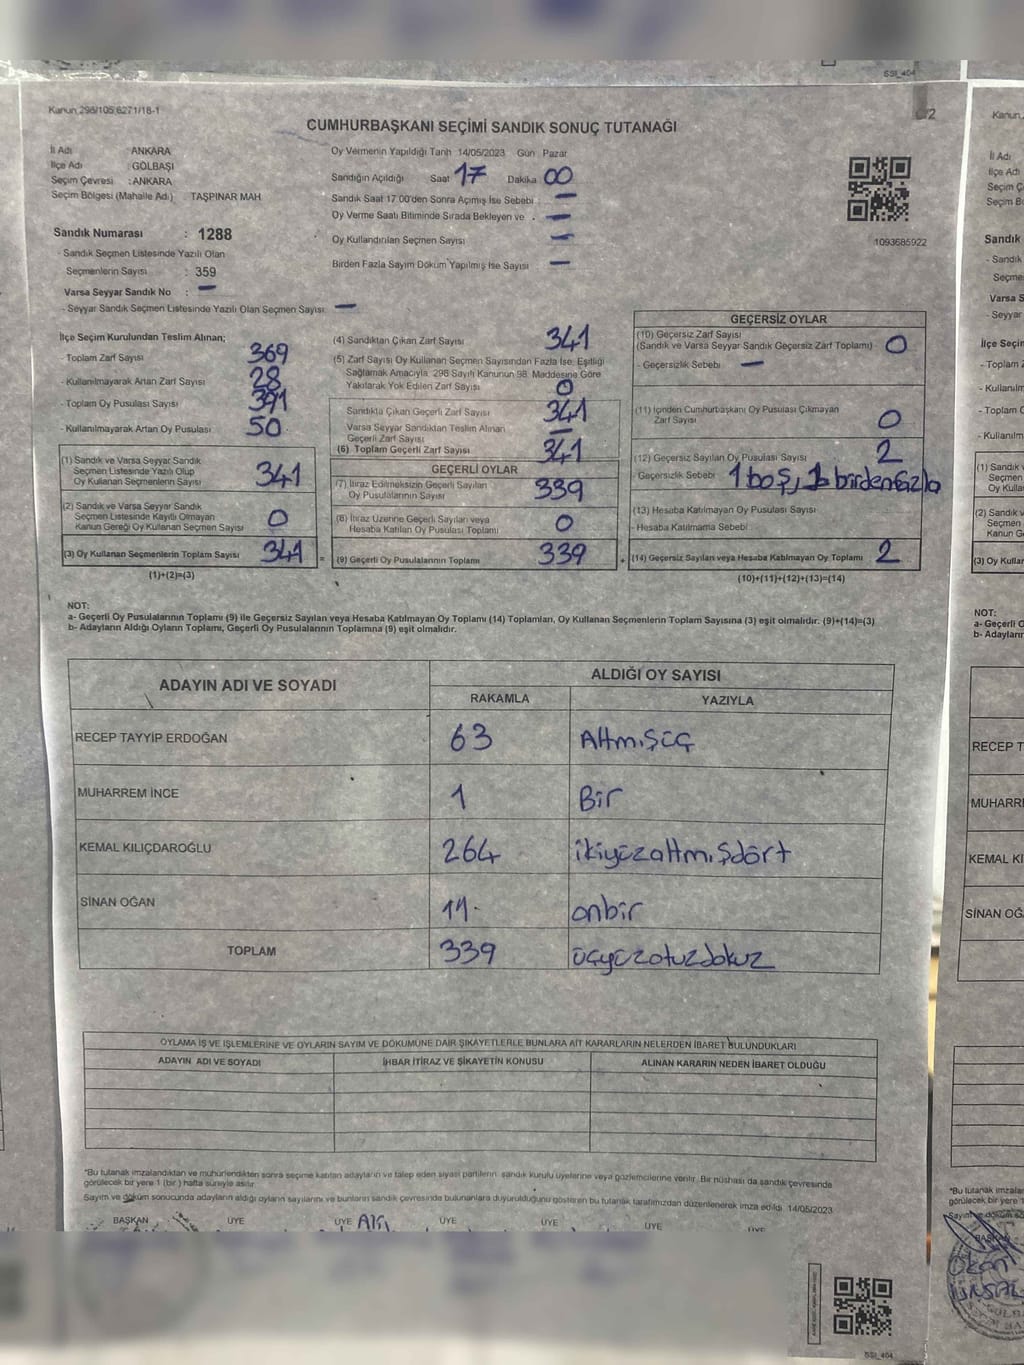 SSI_404
Kanun 298/105 6271/18-1
CUMHURBAŞKANI SEÇİMİ SANDIK SONUÇ TUTANAĞI
İl Adı ANKARA
İlçe Adı : GÖLBAŞI
Seçim Çevresi : ANKARA
Seçim Bölgesi (Mahalle Adı) TAŞPINAR MAH
Sandık Numarası : 1288
- Sandık Seçmen Listesinde Yazılı Olan
Seçmenlerin Sayısı : 359
Varsa Seyyar Sandık No : —
- Seyyar Sandık Seçmen Listesinde Yazılı Olan Seçmen Sayısı —
Oy Vermenin Yapıldığı Tarih 14/05/2023 Gün Pazar
Sandığın Açıldığı Saat 17 Dakika 00
Sandık Saat 17 00'den Sonra Açımış İse Sebebi —
Oy Verme Saati Bitiminde Sırada Bekleyen ve —
Oy Kullandırılan Seçmen Sayısı —
Birden Fazla Sayım Döküm Yapılmış İse Sayısı —
1093685922
İlçe Seçim Kurulundan Teslim Alınan;
- Toplam Zarf Sayısı 369
- Kullanılmayarak Artan Zarf Sayısı 28
- Toplam Oy Pusulası Sayısı 391
- Kullanılmayarak Artan Oy Pusulası 50
(1) Sandık ve Varsa Seyyar Sandık
Seçmen Listesinde Yazılı Olup
Oy Kullanan Seçmenlerin Sayısı 341
(2) Sandık ve Varsa Seyyar Sandık
Seçmen Listesinde Kayıtlı Olmayan
Kanun Gereği Oy Kullanan Seçmen Sayısı 0
(3) Oy Kullanan Seçmenlerin Toplam Sayısı 341 =
(1)+(2)=(3)
(4) Sandıktan Çıkan Zarf Sayısı 341
(5) Zarf Sayısı Oy Kullanan Seçmen Sayısından Fazla İse, Eşitliği
Sağlamak Amacıyla, 298 Sayılı Kanunun 98. Maddesine Göre
Yakılarak Yok Edilen Zarf Sayısı 0
Sandıkta Çıkan Geçerli Zarf Sayısı 341
Varsa Seyyar Sandıktan Teslim Alınan
Geçerli Zarf Sayısı —
(6) Toplam Geçerli Zarf Sayısı 341
GEÇERLİ OYLAR
(7) İtiraz Edilmeksizin Geçerli Sayılan
Oy Pusulalarının Sayısı 339
(8) İtiraz Üzerine Geçerli Sayılan veya
Hesaba Katılan Oy Pusulası Toplamı 0
(9) Geçerli Oy Pusulalarının Toplamı 339 +
GEÇERSİZ OYLAR
(10) Geçersiz Zarf Sayısı
(Sandık ve Varsa Seyyar Sandık Geçersiz Zarf Toplamı) 0
- Geçersizlik Sebebi —
(11) İçinden Cumhurbaşkanı Oy Pusulası Çıkmayan
Zarf Sayısı 0
(12) Geçersiz Sayılan Oy Pusulası Sayısı 2
- Geçersizlik Sebebi 1 boş, 1 birden fazla
(13) Hesaba Katılmayan Oy Pusulası Sayısı
- Hesaba Katılmama Sebebi
(14) Geçersiz Sayılan veya Hesaba Katılmayan Oy Toplamı 2
(10)+(11)+(12)+(13)=(14)
NOT:
a- Geçerli Oy Pusulalarının Toplamı (9) ile Geçersiz Sayılan veya Hesaba Katılmayan Oy Toplamı (14) Toplamları, Oy Kullanan Seçmenlerin Toplam Sayısına (3) eşit olmalıdır. (9)+(14)=(3)
b- Adayların Aldığı Oyların Toplamı, Geçerli Oy Pusulalarının Toplamına (9) eşit olmalıdır.
ADAYIN ADI VE SOYADI ALDIĞI OY SAYISI
RAKAMLA YAZIYLA
RECEP TAYYİP ERDOĞAN 63 Altmışüç
MUHARREM İNCE 1 Bir
KEMAL KILIÇDAROĞLU 264 ikiyüzaltmışdört
SİNAN OĞAN 11 onbir
TOPLAM 339 üçyüzotuzdokuz
OYLAMA İŞ VE İŞLEMLERİNE VE OYLARIN SAYIM VE DÖKÜMÜNE DAİR ŞİKAYETLERLE BUNLARA AİT KARARLARIN NELERDEN İBARET BULUNDUKLARI
ADAYIN ADI VE SOYADI İHBAR İTİRAZ VE ŞİKAYETİN KONUSU ALINAN KARARIN NEDEN İBARET OLDUĞU
*Bu tutanak imzalandıktan ve mühürlendikten sonra seçime katılan adayların ve talep eden siyasi partilerin sandık kurulu üyelerine veya gözlemcilerine verilir. Bir nüshası da sandık çevresinde
görülecek bir yere 1 (bir) hafta süreyle asılır.
Sayım ve döküm sonucunda adayların aldığı oyların sayılarını ve bunların sandık çevresinde bulunanlara duyurulduğunu gösteren bu tutanak tarafımızdan düzenlenerek imza edildi. 14/05/2023
BAŞKAN ÜYE ÜYE ÜYE ÜYE ÜYE ÜYE
SSI_404
Kanun
İl Adı
İlçe Adı
Seçim Ç
Seçim B
Sandık
- Sandık
Seçme
Varsa S
- Seyyar
İlçe Seçi
- Toplam
- Kullanılm
- Toplam
- Kullanılm
(1) Sandık
Seçmen
Oy Kulla
(2) Sandık
Seçmen
Kanun G
(3) Oy Kullar
NOT:
a- Geçerli O
b- Adayların
RECEP T
MUHARR
KEMAL KI
SİNAN OĞ
*Bu tutanak imzala
görülecek bir yere 1